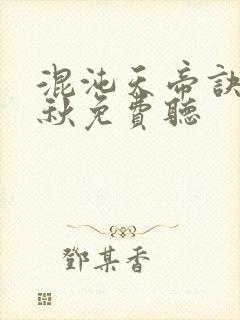 混沌天帝訣
秋免費聽
鄧某香